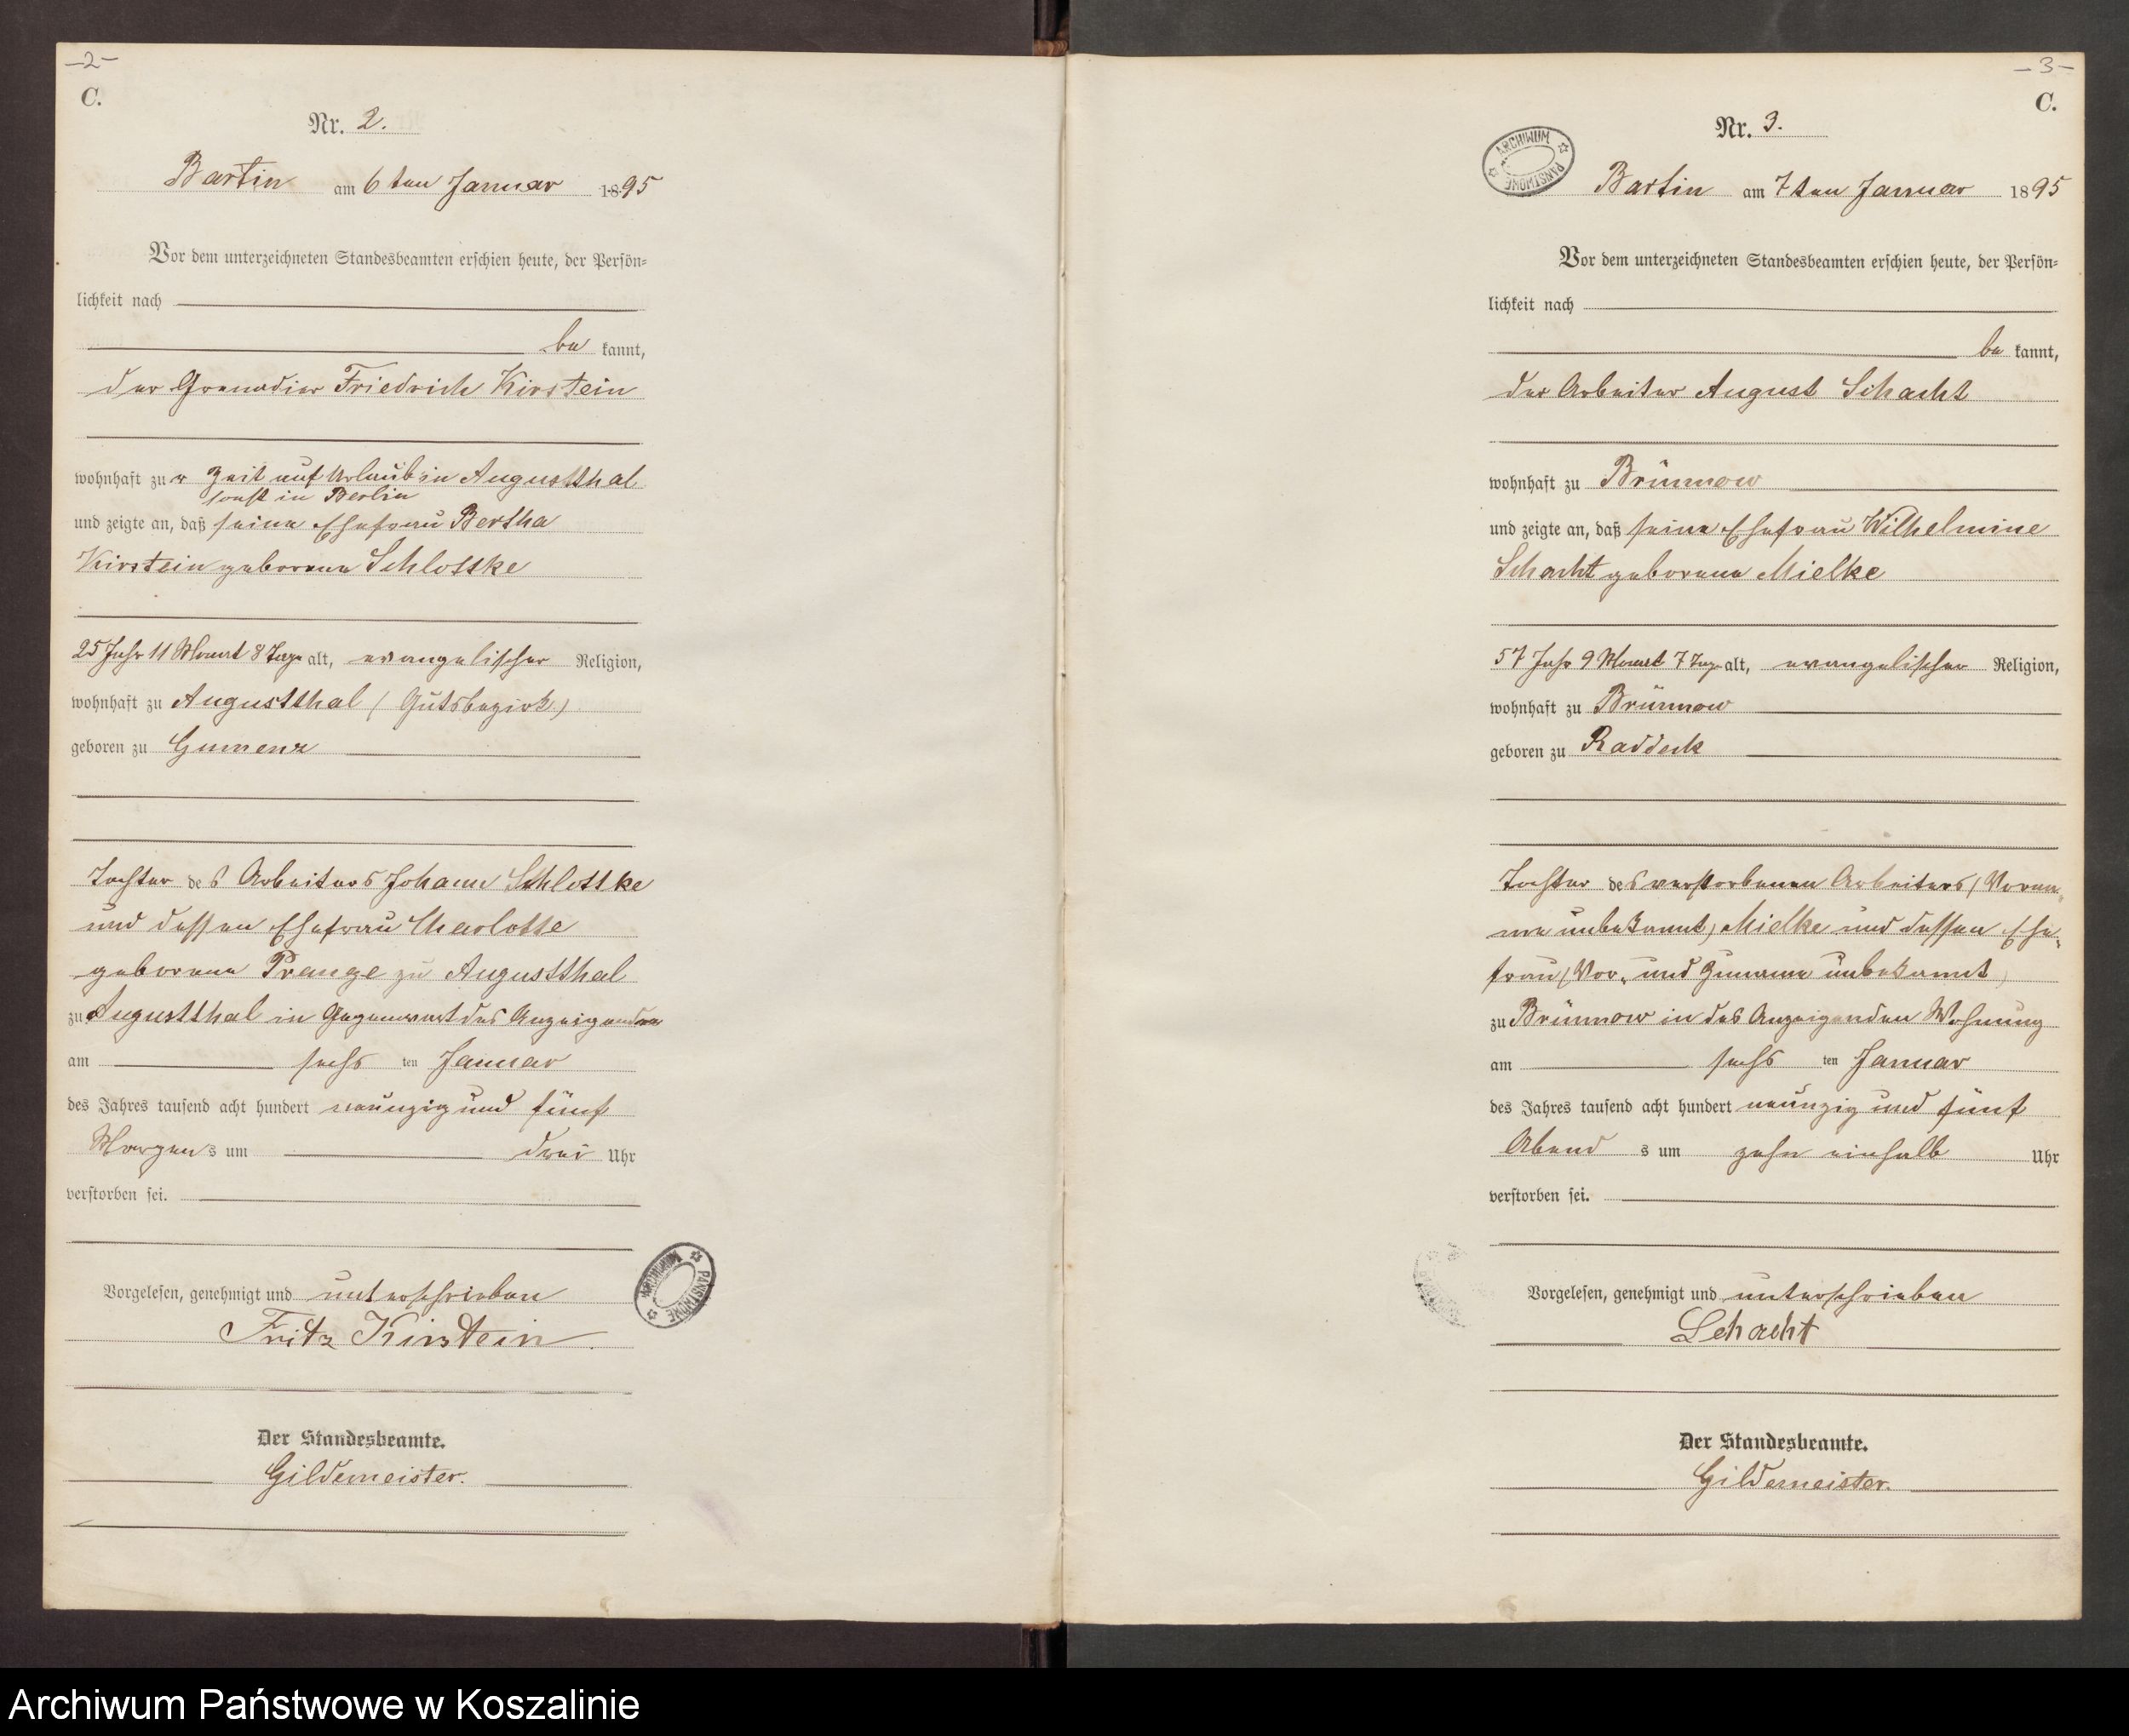 -2-
C.
Nr. 2.
Bartin am 6ten Januar 1895
Vor dem unterzeichneten Standesbeamten erschien heute, der Persön=
lichkeit nach
be kannt,
der Grenadier Friedrich Kirstein
wohnhaft zu r Zeit auf Urlaub in Augustthal
sonst in Berlin
und zeigte an, daß seine Ehefrau Bertha
Kirstein geborene Schlottke
25 Jahr 11 Monat 8 Tage alt, evangelischer Religion,
wohnhaft zu Augustthal (Gutsbezirk)
geboren zu Gumenz
Tochter des Arbeiters Johann Schlottke
und dessen Ehefrau Charlotte
geborene Prange zu Augustthal
zu Augustthal in Gegenwart des Anzeigenden
am sechs ten Januar
des Jahres tausend acht hundert neunzig und fünf
Morgens um drei Uhr
verstorben sei.
Vorgelesen, genehmigt und unterschrieben
Fritz Kirstein.
Der Standesbeamte.
Gildemeister.
ARCHIWUM PAŃSTWOWE
-3-
C.
Nr. 3.
ARCHIWUM PAŃSTWOWE
Bartin am 7ten Januar 1895
Vor dem unterzeichneten Standesbeamten erschien heute, der Persön=
lichkeit nach
be kannt,
der Arbeiter August Schacht
wohnhaft zu Brünnow
und zeigte an, daß seine Ehefrau Wilhelmine
Schacht geborene Mielke
57 Jahr 9 Monat 7 Tage alt, evangelischer Religion,
wohnhaft zu Brünnow
geboren zu Raddeck
Tochter des verstorbenen Arbeiters (Vorna=
me unbekannt) Mielke und dessen Ehe=
frau (Vor- und Zuname unbekannt)
zu Brünnow in des Anzeigenden Wohnung
am sechs ten Januar
des Jahres tausend acht hundert neunzig und fünf
Abend s um zehn einhalb Uhr
verstorben sei.
Vorgelesen, genehmigt und unterschrieben
Schacht
Der Standesbeamte.
Gildemeister.
Archiwum Państwowe w Koszalinie